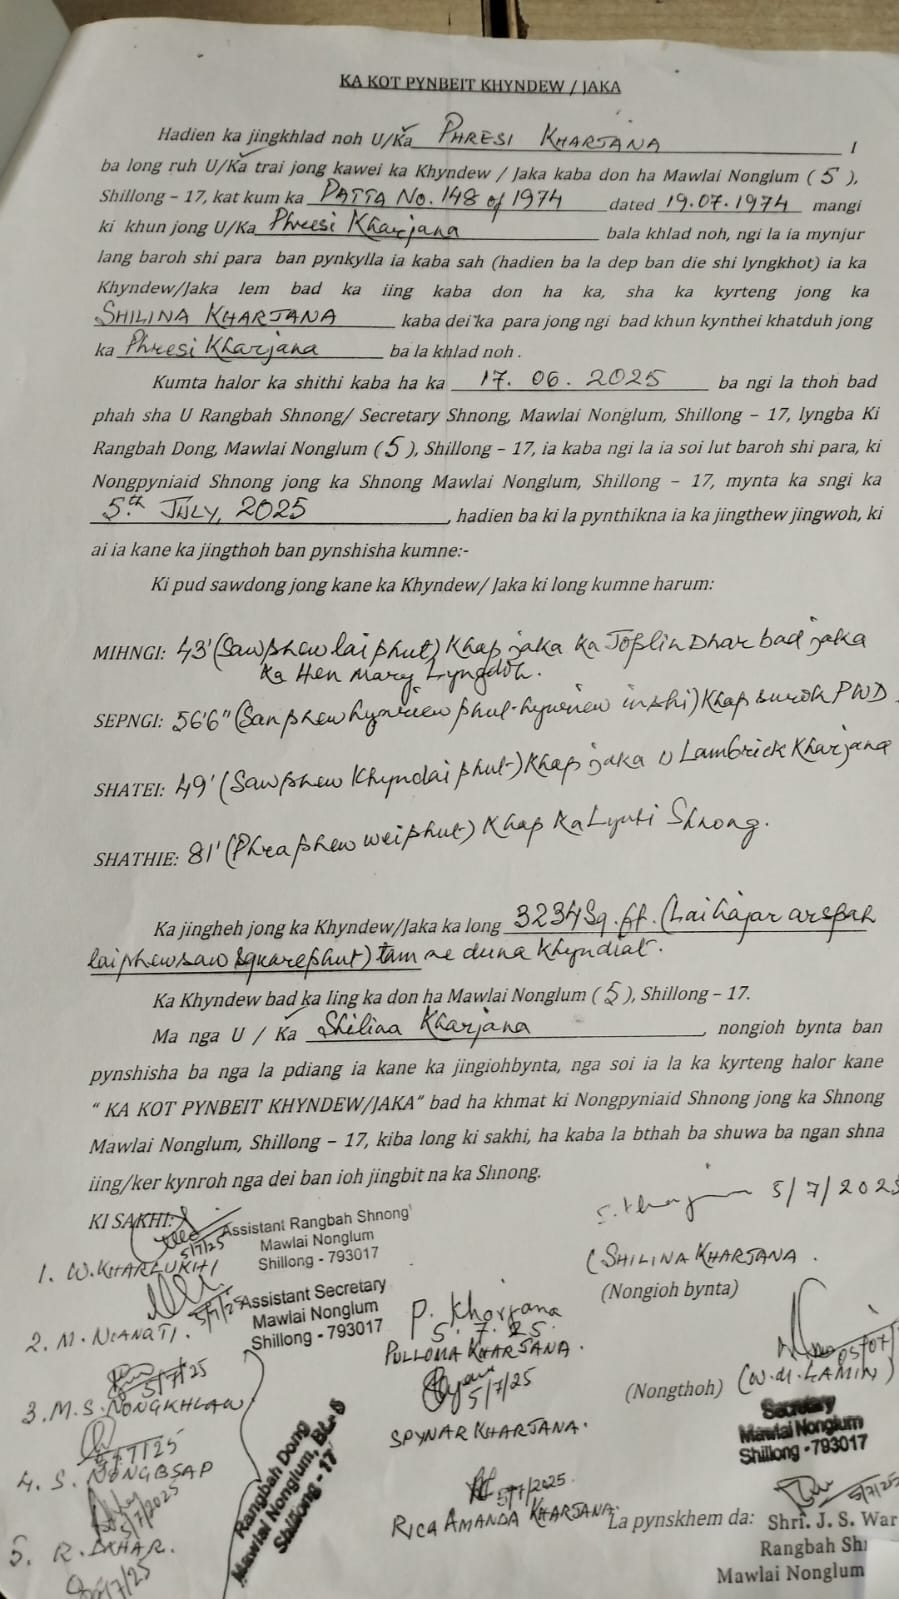 KA KOT PYNBEIT KHYNDEW / JAKA
Hadien ka jingkhlad noh U/Ka PHRESI KHARJANA
ba long ruh U/Ka trai jong kawei ka Khyndew / Jaka kaba don ha Mawlai Nonglum ( 5 ),
Shillong – 17, kat kum ka PATTA No. 148 of 1974 dated 19.07.1974 mangi
ki khun jong U/Ka Phresi Kharjana bala khlad noh, ngi la ia mynjur
lang baroh shi para ban pynkylla ia kaba sah (hadien ba la dep ban die shi lyngkhot) ia ka
Khyndew/Jaka lem bad ka iing kaba don ha ka, sha ka kyrteng jong ka
SHILINA KHARJANA kaba dei ka para jong ngi bad khun kynthei khatduh jong
ka Phresi Kharjana ba la khlad noh .
Kumta halor ka shithi kaba ha ka 17. 06. 2025 ba ngi la thoh bad
phah sha U Rangbah Shnong/ Secretary Shnong, Mawlai Nonglum, Shillong – 17, lyngba Ki
Rangbah Dong, Mawlai Nonglum ( 5 ), Shillong – 17, ia kaba ngi la ia soi lut baroh shi para, ki
Nongpyniaid Shnong jong ka Shnong Mawlai Nonglum, Shillong – 17, mynta ka sngi ka
5th JULY, 2025 , hadien ba ki la pynthikna ia ka jingthew jingwoh, ki
ai ia kane ka jingthoh ban pynshisha kumne:-
Ki pud sawdong jong kane ka Khyndew/ Jaka ki long kumne harum:
MIHNGI: 43' (Sawphew lai phut) Khap jaka ka Joplin Dhar bad jaka
ka Hen Mary Lyngdoh.
SEPNGI: 56'6" (Sanphew hynriew phut-hynriew inshi) Khap surok PWD.
SHATEI: 49' (Sawphew Khyndai phut) Khap jaka U Lambrick Kharjana
SHATHIE: 81' (Phraphew wei phut) Khap Ka Lynti Shnong.
Ka jingheh jong ka Khyndew/Jaka ka long 3234 Sq. ft. (Lai hajar arspah
laiphewsaw square phut) tam ne duna khyndiat.
Ka Khyndew bad ka Iing ka don ha Mawlai Nonglum ( 5 ), Shillong – 17.
Ma nga U / Ka Shilina Kharjana , nongioh bynta ban
pynshisha ba nga la pdiang ia kane ka jingiohbynta, nga soi ia la ka kyrteng halor kane
“ KA KOT PYNBEIT KHYNDEW/JAKA” bad ha khmat ki Nongpyniaid Shnong jong ka Shnong
Mawlai Nonglum, Shillong – 17, kiba long ki sakhi, ha kaba la bthah ba shuwa ba ngan shna
iing/ker kynroh nga dei ban ioh jingbit na ka Shnong.
5/7/2025
KI SAKHI:
5/7/25
Assistant Rangbah Shnong
Mawlai Nonglum
Shillong - 793017
1. W. KHARLUKHI
(SHILINA KHARJANA.
(Nongioh bynta)
5/7/25
Assistant Secretary
Mawlai Nonglum
Shillong - 793017
2. M. NIANGTI.
P. Kharjana
5. 7. 25.
PULLOMA KHARJANA.
5/7/25
3. M.S. NONGKHLAW
5/7/25
SPYNAR KHARJANA.
(Nongthoh) (W.M. LAMIN)
Secretary
Mawlai Nonglum
Shillong - 793017
5/7/25
4. S. NONGBSAP
Rangbah Dong
Mawlai Nonglum,
Shillong - 17
5/7/2025
RICA AMANDA KHARJANA.
5/7/2025
5. R. DKHAR.
5/7/25
5/7/25
La pynskhem da: Shri. J. S. War
Rangbah
Mawlai Nonglum